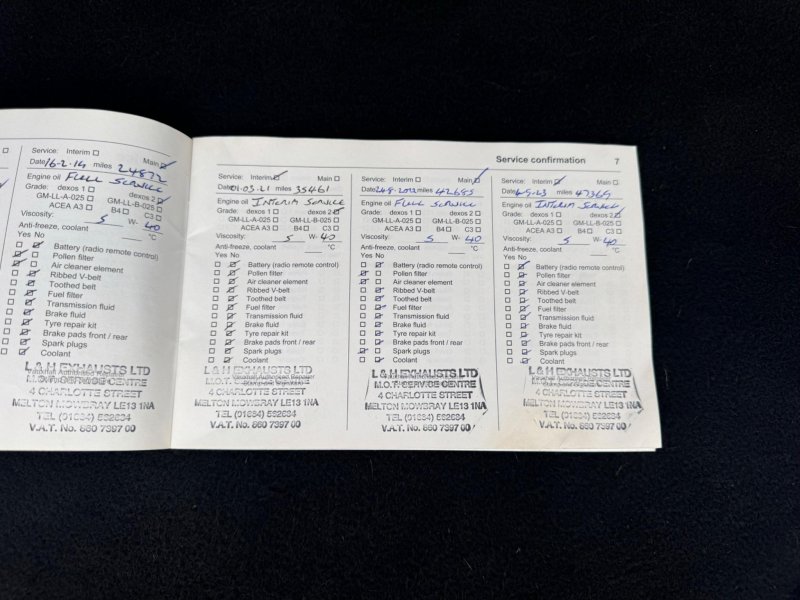 Service: Interim Main
Date 16-2-14 miles 24872
Engine oil FULL SERVICE
Grade: dexos 1 dexos 2
GM-LL-A-025 GM-LL-B-025
ACEA A3 B4 C3
Viscosity: 5 W- 40
Anti-freeze, coolant °C
Yes No
Battery (radio remote control)
Pollen filter
Air cleaner element
Ribbed V-belt
Toothed belt
Fuel filter
Transmission fluid
Brake fluid
Tyre repair kit
Brake pads front / rear
Spark plugs
Coolant
L & H EXHAUSTS LTD
M.O.T. SERVICE CENTRE
4 CHARLOTTE STREET
MELTON MOWBRAY LE13 1NA
TEL (01664) 562634
V.A.T. No. 860 7397 00
Service confirmation 7
Service: Interim Main
Date 01.03.21 miles 35461
Engine oil INTERIM SERVICE
Grade: dexos 1 dexos 2
GM-LL-A-025 GM-LL-B-025
ACEA A3 B4 C3
Viscosity: 5 W- 40
Anti-freeze, coolant °C
Yes No
Battery (radio remote control)
Pollen filter
Air cleaner element
Ribbed V-belt
Toothed belt
Fuel filter
Transmission fluid
Brake fluid
Tyre repair kit
Brake pads front / rear
Spark plugs
Coolant
L & H EXHAUSTS LTD
M.O.T. SERVICE CENTRE
4 CHARLOTTE STREET
MELTON MOWBRAY LE13 1NA
TEL (01664) 562634
V.A.T. No. 860 7397 00
Service: Interim Main
Date miles 42685
Engine oil FULL SERVICE
Grade: dexos 1 dexos 2
GM-LL-A-025 GM-LL-B-025
ACEA A3 B4 C3
Viscosity: 5 W- 40
Anti-freeze, coolant °C
Yes No
Battery (radio remote control)
Pollen filter
Air cleaner element
Ribbed V-belt
Toothed belt
Fuel filter
Transmission fluid
Brake fluid
Tyre repair kit
Brake pads front / rear
Spark plugs
Coolant
L & H EXHAUSTS LTD
M.O.T. SERVICE CENTRE
4 CHARLOTTE STREET
MELTON MOWBRAY LE13 1NA
TEL (01664) 562634
V.A.T. No. 860 7397 00
Service: Interim Main
Date miles 47369
Engine oil INTERIM SERVICE
Grade: dexos 1 dexos 2
GM-LL-A-025 GM-LL-B-025
ACEA A3 B4 C3
Viscosity: 5 W- 40
Anti-freeze, coolant °C
Yes No
Battery (radio remote control)
Pollen filter
Air cleaner element
Ribbed V-belt
Toothed belt
Fuel filter
Transmission fluid
Brake fluid
Tyre repair kit
Brake pads front / rear
Spark plugs
Coolant
L & H EXHAUSTS LTD
M.O.T. SERVICE CENTRE
4 CHARLOTTE STREET
MELTON MOWBRAY LE13 1NA
TEL (01664) 562634
V.A.T. No. 860 7397 00